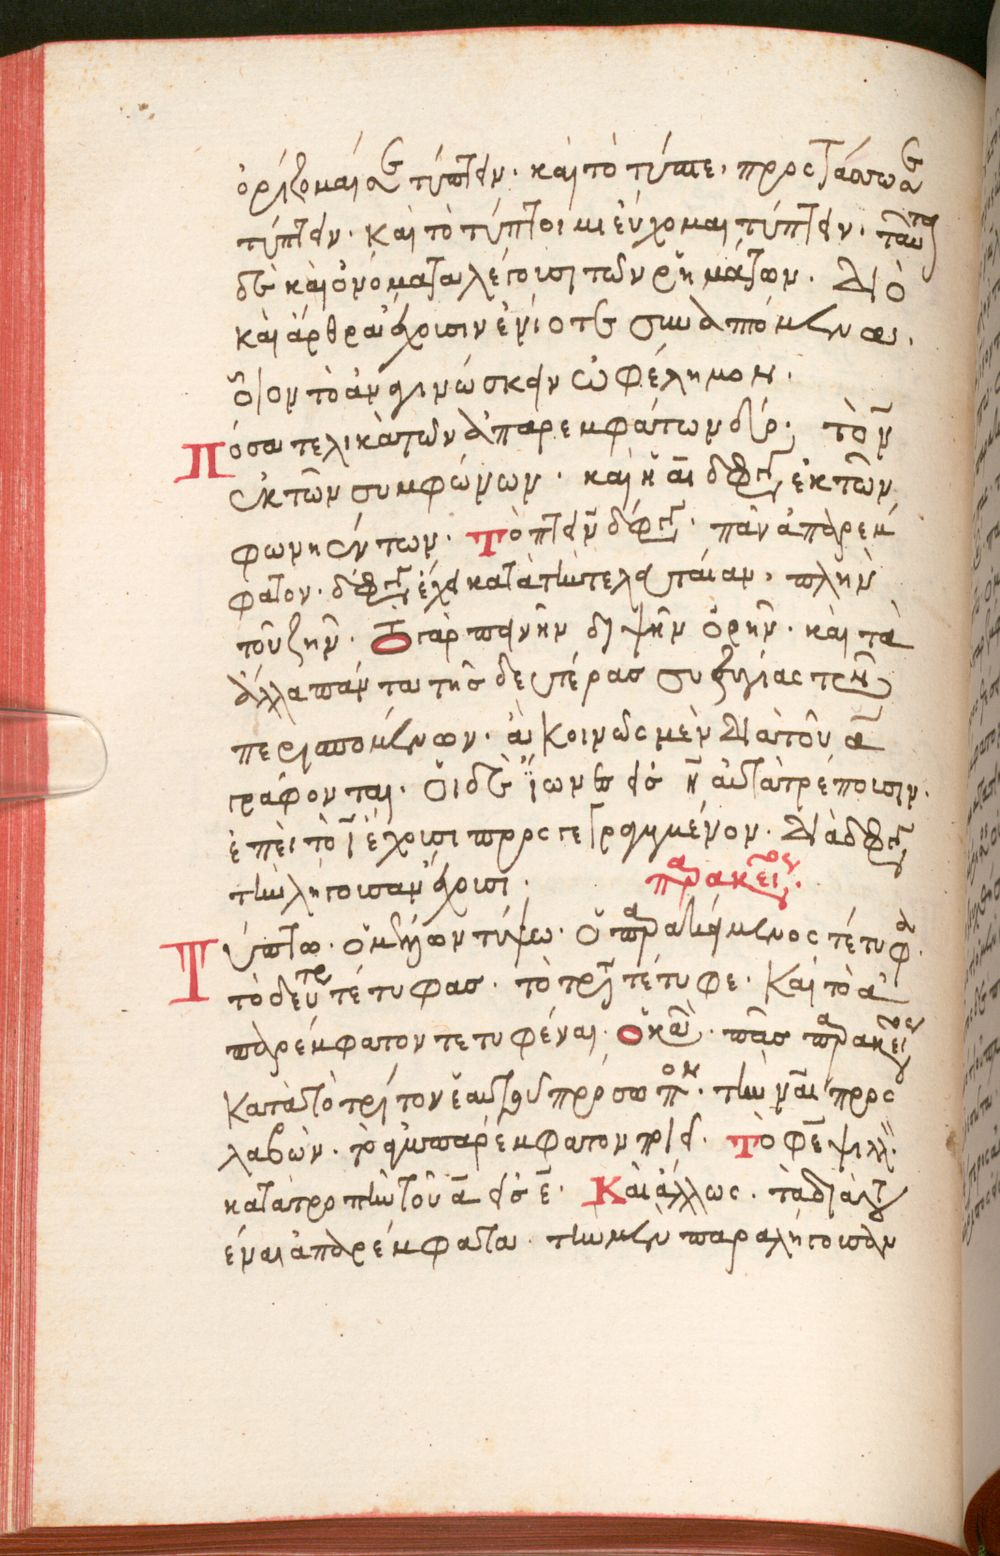 ὁρίζομαί σε τύπτειν. καὶ τὸ τύπτε, προστάσσω σε
τύπτειν. καὶ τὸ τύπτοιμι εὔχομαι τύπτειν. ταῦτα
δὲ καὶ ὀνόματα λέγουσι τῶν ῥημάτων. διὸ
καὶ ἄρθρα ἔχουσιν ἐνίοτε συναπτόμενα.
οἷον τὸ ἀναγινώσκειν ὠφέλημον.
Πόσα τελικὰ τῶν ἀπαρεμφάτων δύο. τὸ ν
ἐκ τῶν συμφώνων. καὶ ἡ αι δίφθογγος ἐκ τῶν
φωνηέντων. Τὸ πτειν δίφθογγος. πᾶν ἀπαρέμ
φατον. δίφθογγον ἔχει κατὰ τὴν τελευταίαν, πλὴν
τοῦ ζῆν. τὸ γὰρ πεινῆν διψῆν ὁρῆν. καὶ τὰ
ἄλλα πάντα τῆς δευτέρας συζυγίας τῶν
περισπωμένων. ἃ κοινῶς μὲν διὰ τοῦ α
γράφονται. οἱ δὲ ἴωνες εἰς η αὐτὰ τρέπουσιν.
ἐπεὶ τὸ ι ἔχουσι προσγεγραμμένον. διὰ διφθόγγου
τὴν λήγουσαν ἔχουσι. παρακείμενος.
Τύπτω. ὁ μέλλων τύψω. ὁ παρακείμενος τέτυφα.
τὸ δεύτερον τέτυφας. τὸ τρίτον τέτυφε. καὶ τὸ ἀ
παρέμφατον τετυφέναι. ὁ κανών. πᾶς παρακείμενος
κατὰ τὸ τρίτον ἑαυτοῦ πρόσωπον. τὴν ναι προσ
λαβών. τὸ ἀπαρέμφατον ποιεῖ. Τὸ φε ψιλόν.
κατὰ τροπὴν τοῦ α εἰς ε. Καὶ ἄλλως. τὰ διὰ τοῦ
έναι ἀπαρέμφατα. τὴν μὲν παραλήγουσαν